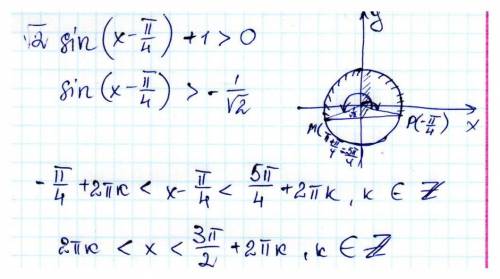 √2 sin(x - π/4) + 1 > 0
sin(x - π/4) > - 1/√2
y
x
P(-π/4)
M(π + π/4 = 5π/4)
-π/4 + 2πk < x - π/4 < 5π/4 + 2πk, k ∈ Z
2πk < x < 3π/2 + 2πk, k ∈ Z